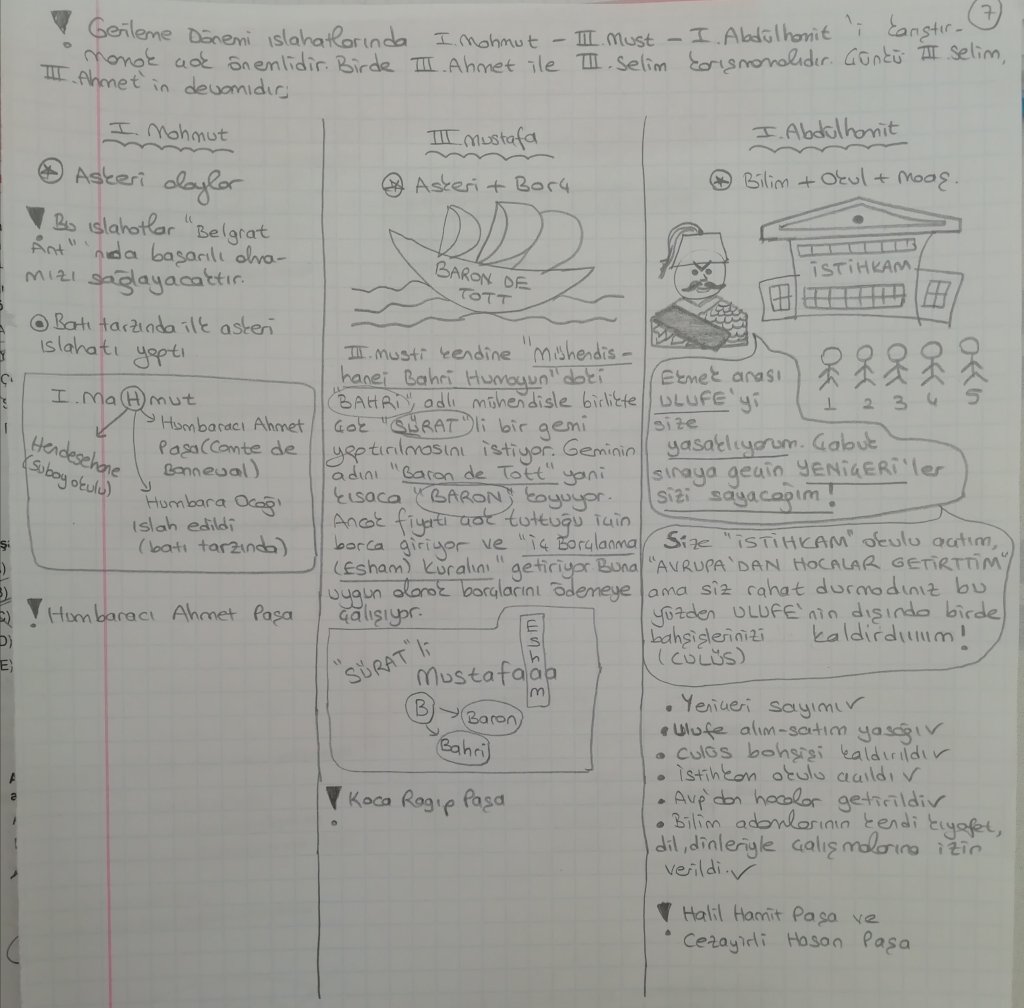 7
! Gerileme Dönemi ıslahatlarında I. Mahmut - III. Must - I. Abdülhamit 'i karıştır-
mamak çok önemlidir. Birde III. Ahmet ile III. Selim karışmamalıdır. Çünkü III. Selim,
III. Ahmet'in devamıdır;
I. Mahmut
Askeri olaylar
! Bu ıslahatlar "Belgrat
Ant" 'nda başarılı olma-
mızı sağlayacaktır.
Batı tarzında ilk askeri
ıslahatı yaptı
I. Ma(H)mut
Humbaracı Ahmet
Paşa (Comte de
Bonneval)
Hendesehane
(Subay okulu)
Humbara Ocağı
ıslah edildi
(batı tarzında)
! Humbaracı Ahmet Paşa
III. Mustafa
Askeri + Borç
BARON DE
TOTT
III. Musti kendine "Mühendis-
hanei Bahri Humayun" daki
"BAHRİ", adlı mühendisle birlikte
çok "SÜRAT"li bir gemi
yaptırılmasını istiyor. Geminin
adını "Baron de Tott" yani
kısaca "BARON" koyuyor.
Ancak fiyatı çok tuttuğu için
borca giriyor ve "İç Borçlanma
(Esham) Kuralını" getiriyor Buna
uygun olarak borçlarını ödemeye
çalışıyor.
"SÜRAT"li
Mustafaaa
Esham
B → Baron
Bahri
! Koca Ragıp Paşa
I. Abdülhamit
Bilim + Okul + Maaş.
İSTİHKAM
1 2 3 4 5
Ekmek arası
ULUFE'yi
size
yasaklıyorum. Çabuk
sıraya geçin YENİÇERİ'ler
sizi sayacağım!
Size "İSTİHKAM" okulu açtım,
"AVRUPA'DAN HOCALAR GETİRTTİM"
ama siz rahat durmadınız bu
yüzden ULUFE'nin dışında birde
bahşişlerinizi kaldırdıııım!
(CULÜS)
• Yeniçeri sayımı ✓
• Ulufe alım-satım yasağı ✓
• Culüs bahşişi kaldırıldı ✓
• istihkan okulu açıldı ✓
• Avp'dan hocalar getirildi ✓
• Bilim adamlarının kendi kıyafet,
dil, dinleriyle çalışmalarına izin
verildi. ✓
! Halil Hamit Paşa ve
Cezayirli Hasan Paşa